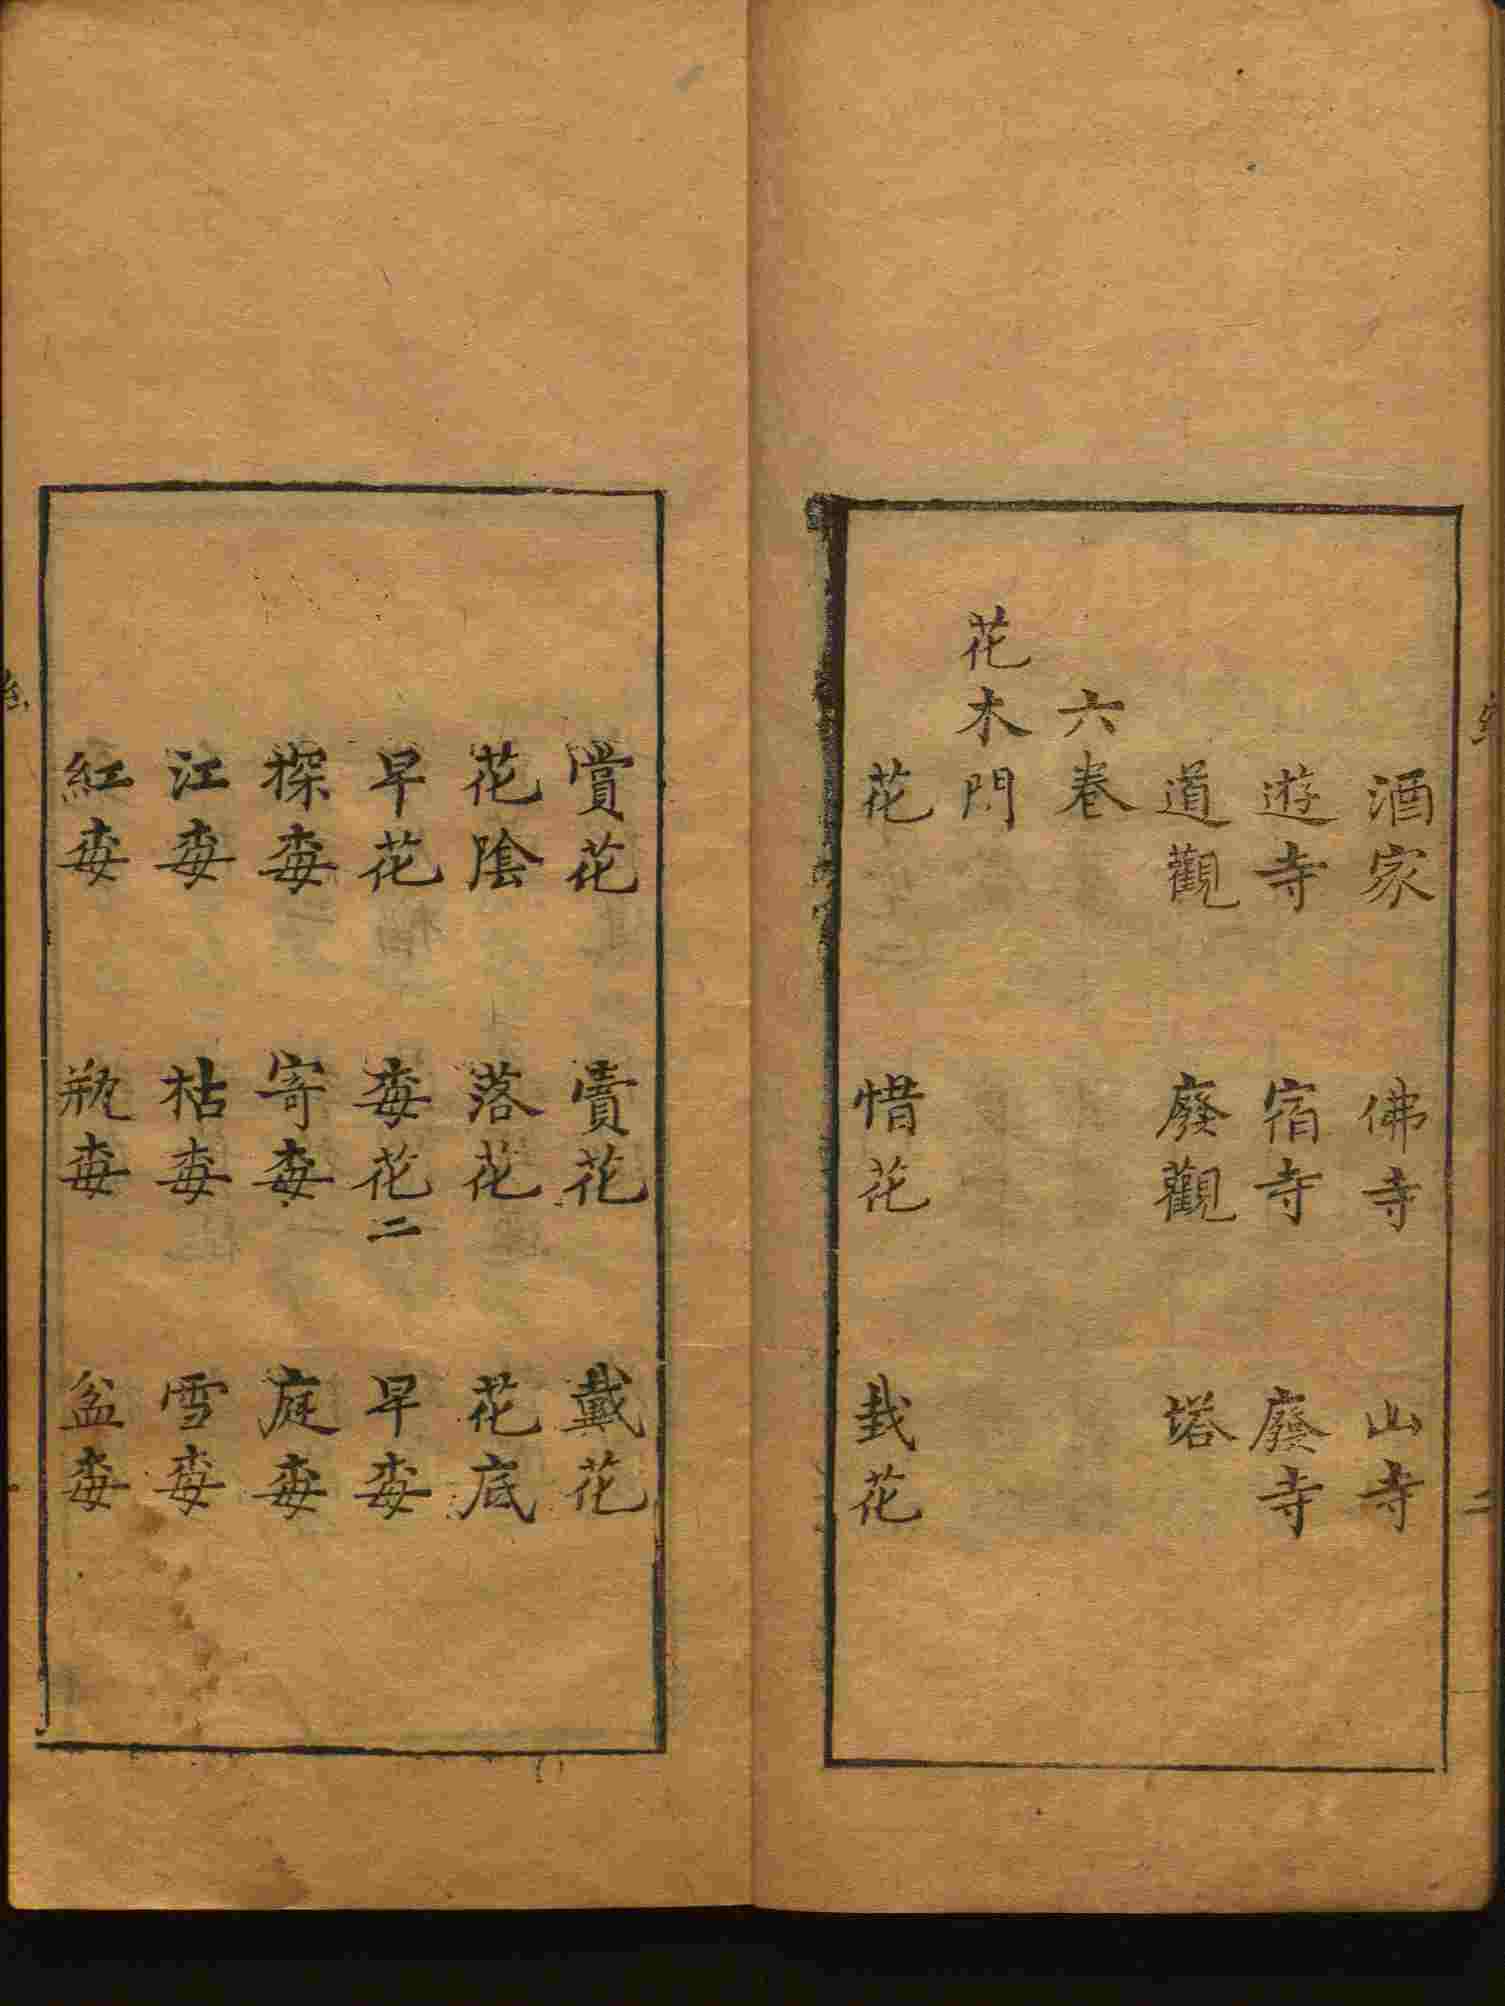 酒家 佛寺 山寺
遊寺 宿寺 廢寺
道觀 廢觀 塔
六卷
花木門
花 惜花 栽花
賞花 賣花 戴花
花陰 落花 花底
早花 梅花二 早梅
探梅 寄梅 庭梅
江梅 枯梅 雪梅
紅梅 瓶梅 盆梅